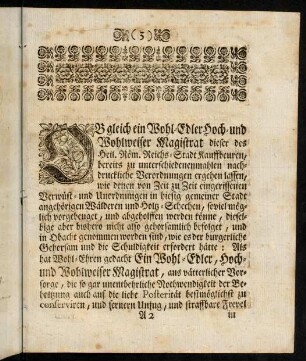 (3)
OB gleich ein Wohl-Edler Hoch- und
Wohlweiser Magistrat dieser des
Heil. Röm. Reichs-Stadt Kauffbeuren,
bereits zu unterschiedenenmahlen nach-
druckliche Verordnungen ergehen lassen,
wie denen von Zeit zu Zeit eingerissenen
Verwüst- und Unordnungen in hiesig gemeiner Stadt
angehörigen Wälderen und Holtz-Schechen, sovil mög-
lich vorgebeuget, und abgeholffen werden könne, diesel-
bige aber bishero nicht also gehorsamlich befolget, und
in Obacht genommen worden sind, wie es der burgerliche
Gehorsam und die Schuldigkeit erfordert hätte: Als
hat Wohl-Ehren gedacht Ein Wohl-Edler, Hoch-
und Wohlweiser Magistrat, aus vätterlicher Vor-
sorge, die so gar unentbehrliche Nothwendigkeit der Be-
holtzung auch auf die liebe Posterität bestmöglichst zu
conserviren, und fernern Unfug, und straffbare Frevel
A 2 in